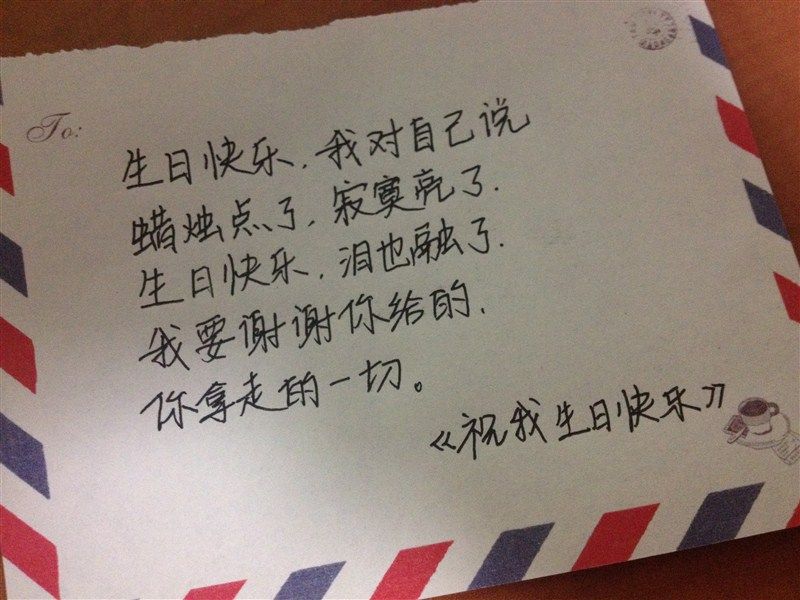 To:
生日快乐,我对自己说
蜡烛点了,寂寞亮了.
生日快乐,泪也融了.
我要谢谢你给的,
你拿走的一切。
《祝我生日快乐》